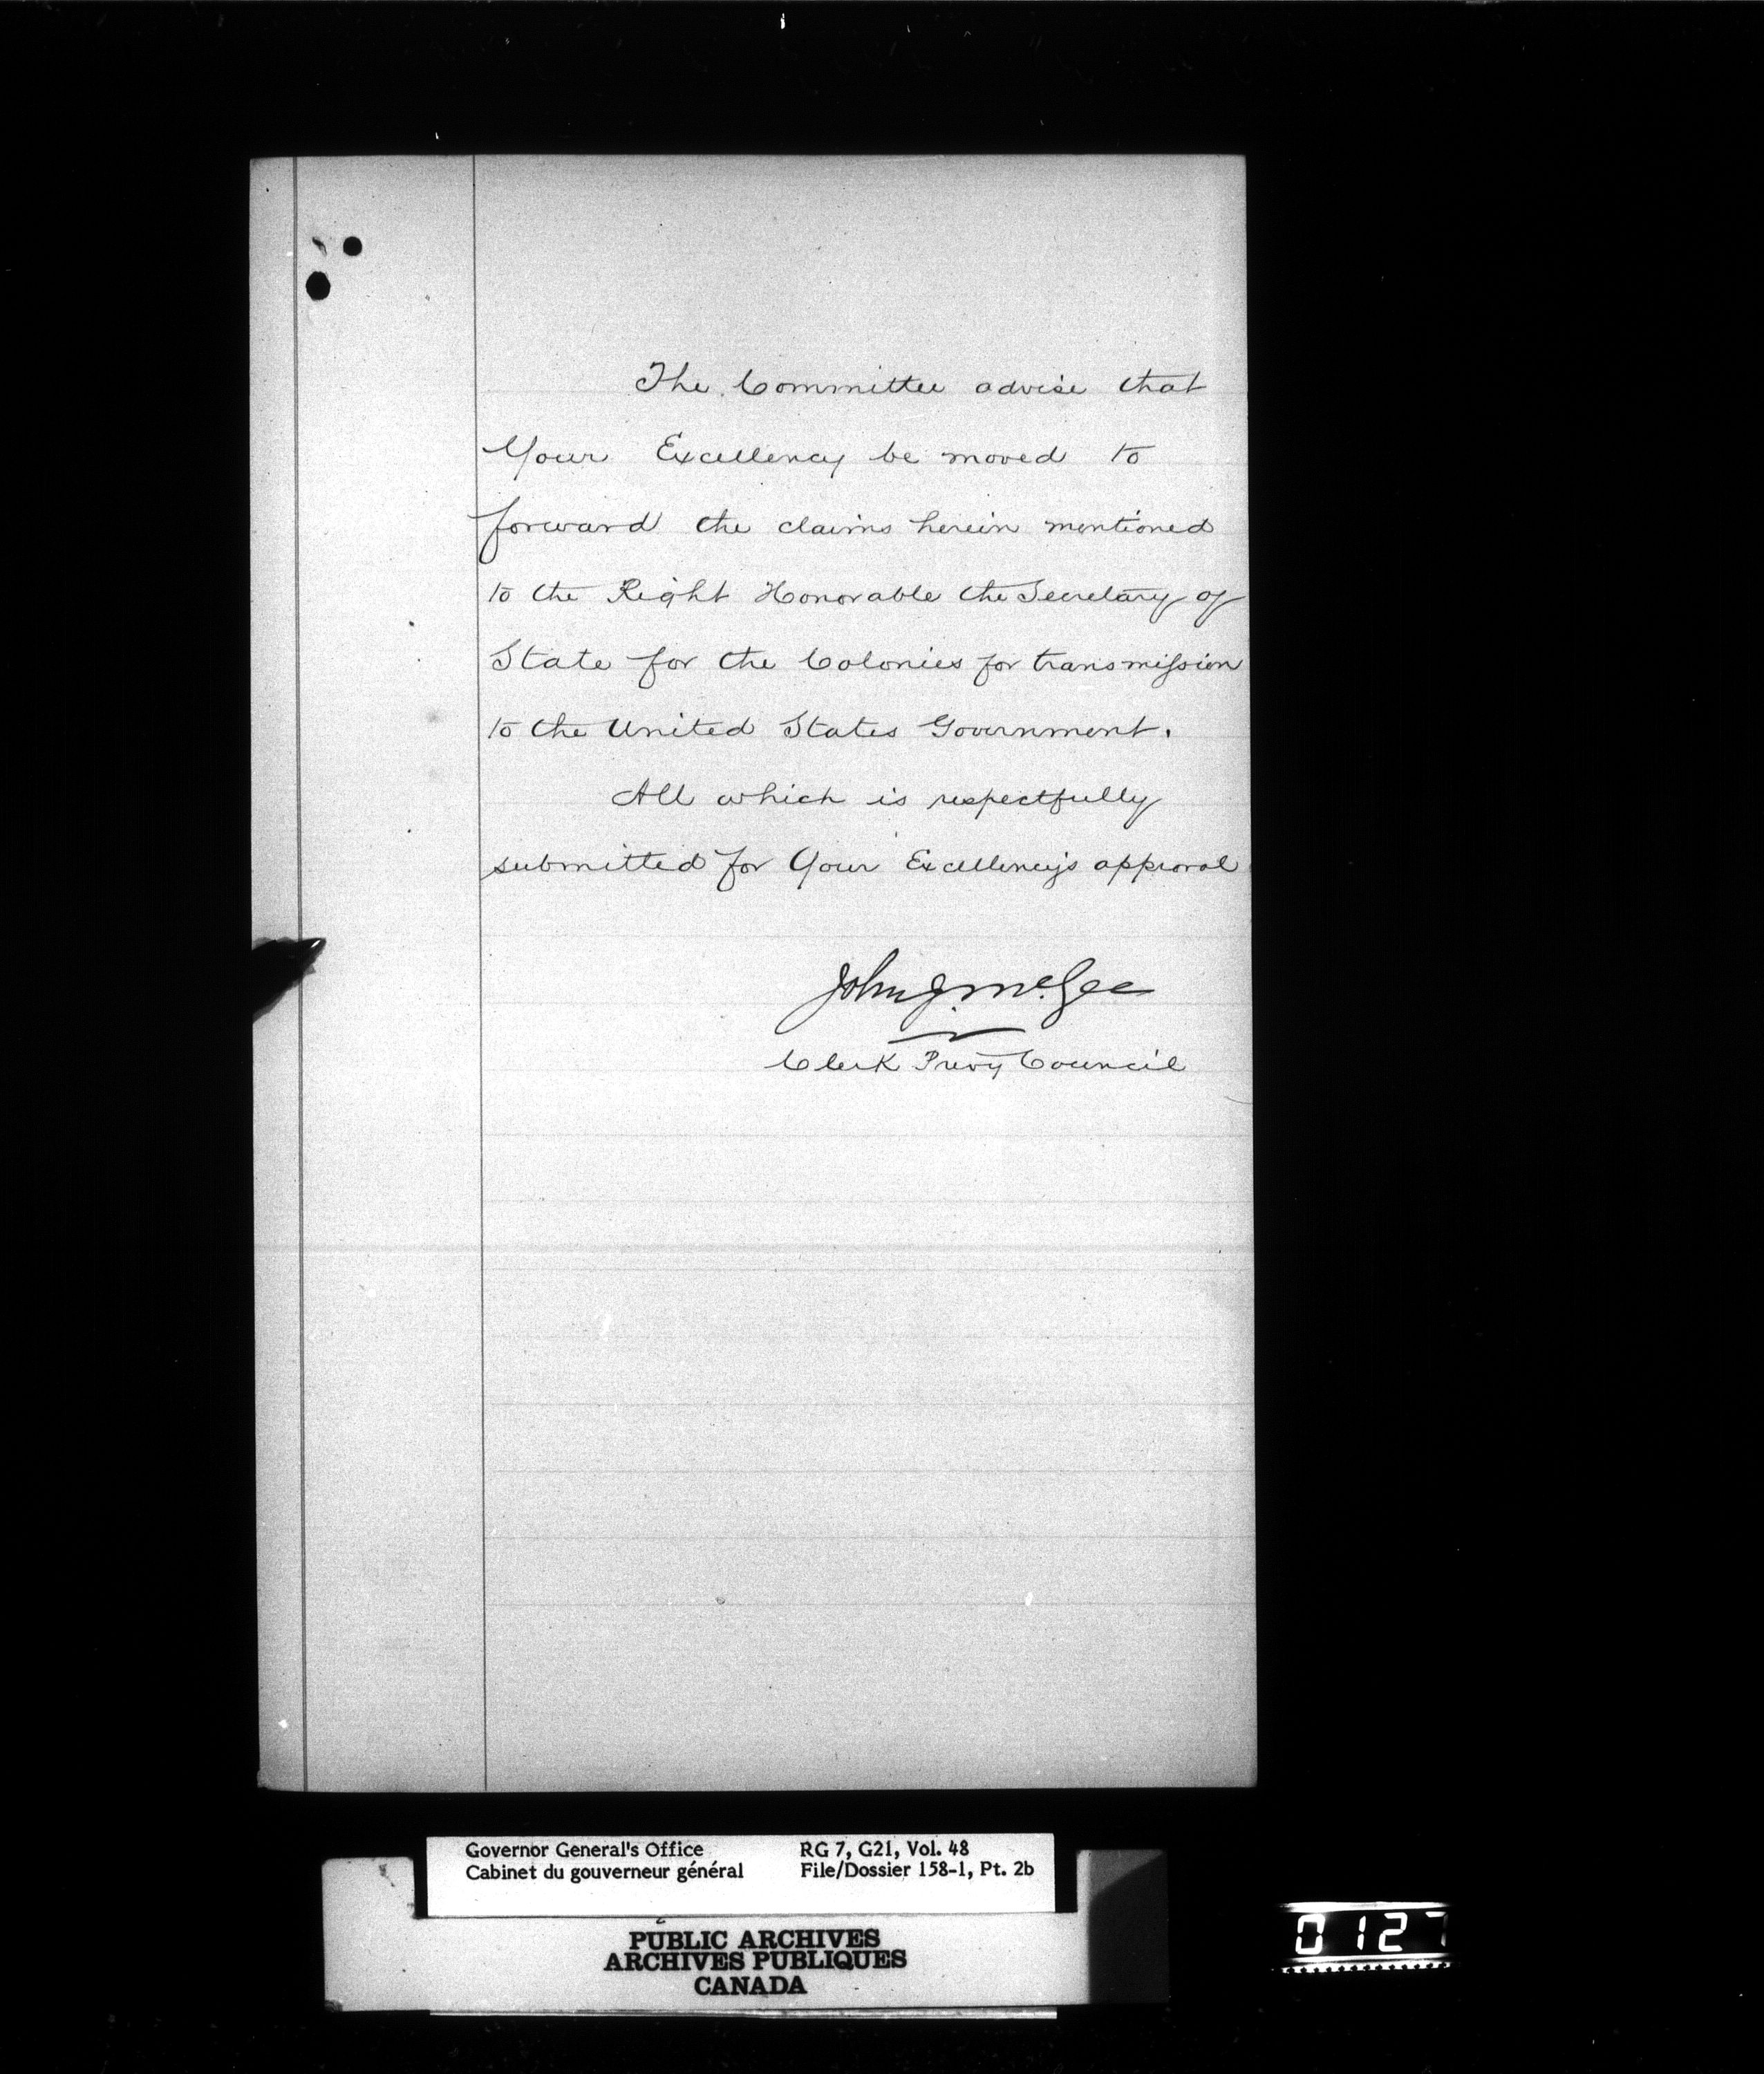 The Committee advise that
Your Excellency be moved to
forward the claims herein mentioned
to the Right Honorable the Secretary of
State for the Colonies for transmission
to the United States Government.
All which is respectfully
submitted for Your Excellency's approval
John J. McGee
Clerk Privy Council
Governor General's Office RG 7, G21, Vol. 48
Cabinet du gouverneur général File/Dossier 158-1, Pt. 2b
PUBLIC ARCHIVES
ARCHIVES PUBLIQUES
CANADA
0127